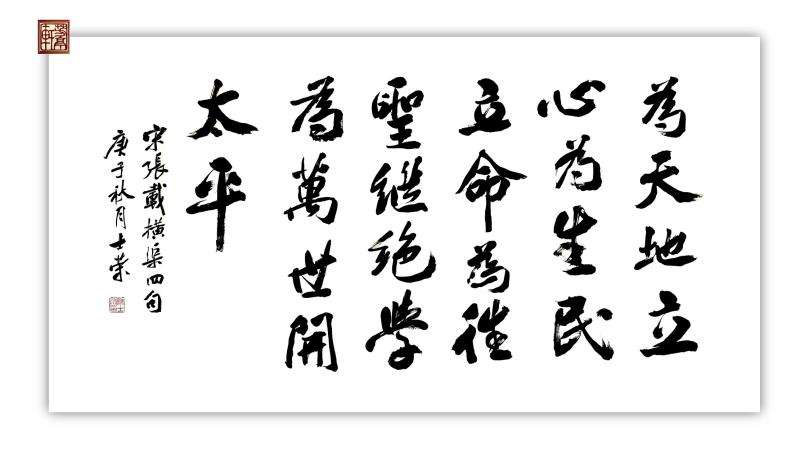 為天地立
心为生民
立命為往
聖继绝学
為萬世開
太平
宋張載橫渠四句
庚子秋月士荣